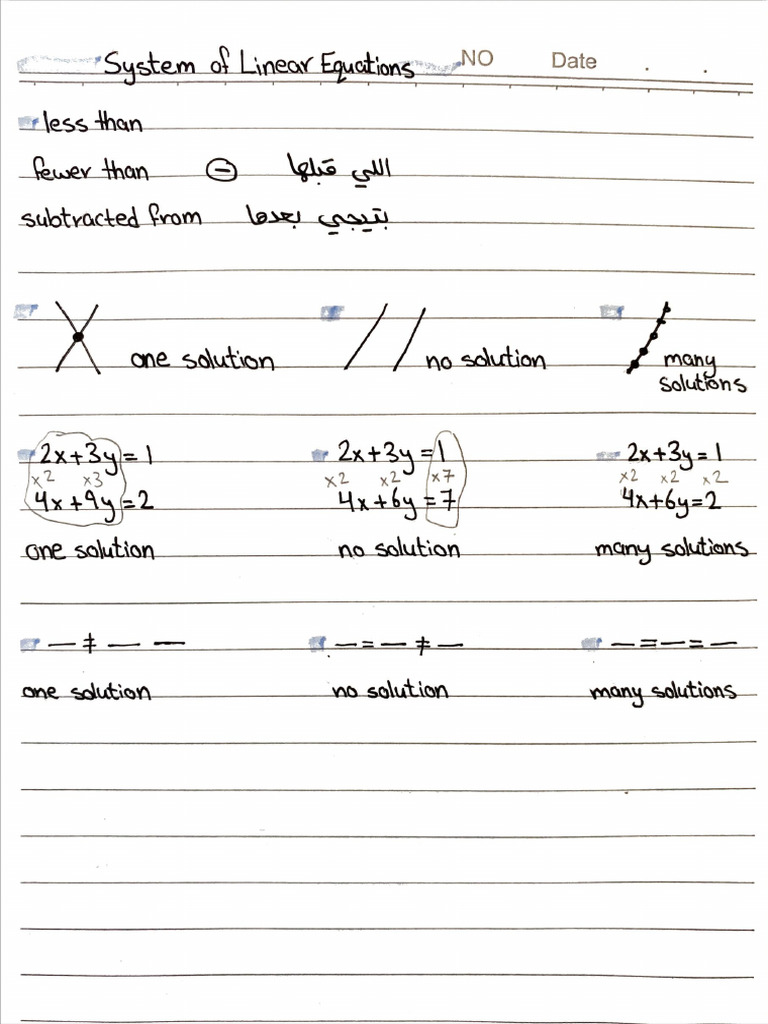 System of Linear Equations NO Date
less than
fewer than ⊖ اللي قبلها
subtracted from بتيجي بعدها
one solution no solution many
solutions
2x+3y=1 2x+3y=1 2x+3y=1
x2 x3 x2 x2 x7 x2 x2 x2
4x+9y=2 4x+6y=7 4x+6y=2
one solution no solution many solutions
— ≠ — — — = — ≠ — — = — = —
one solution no solution many solutions